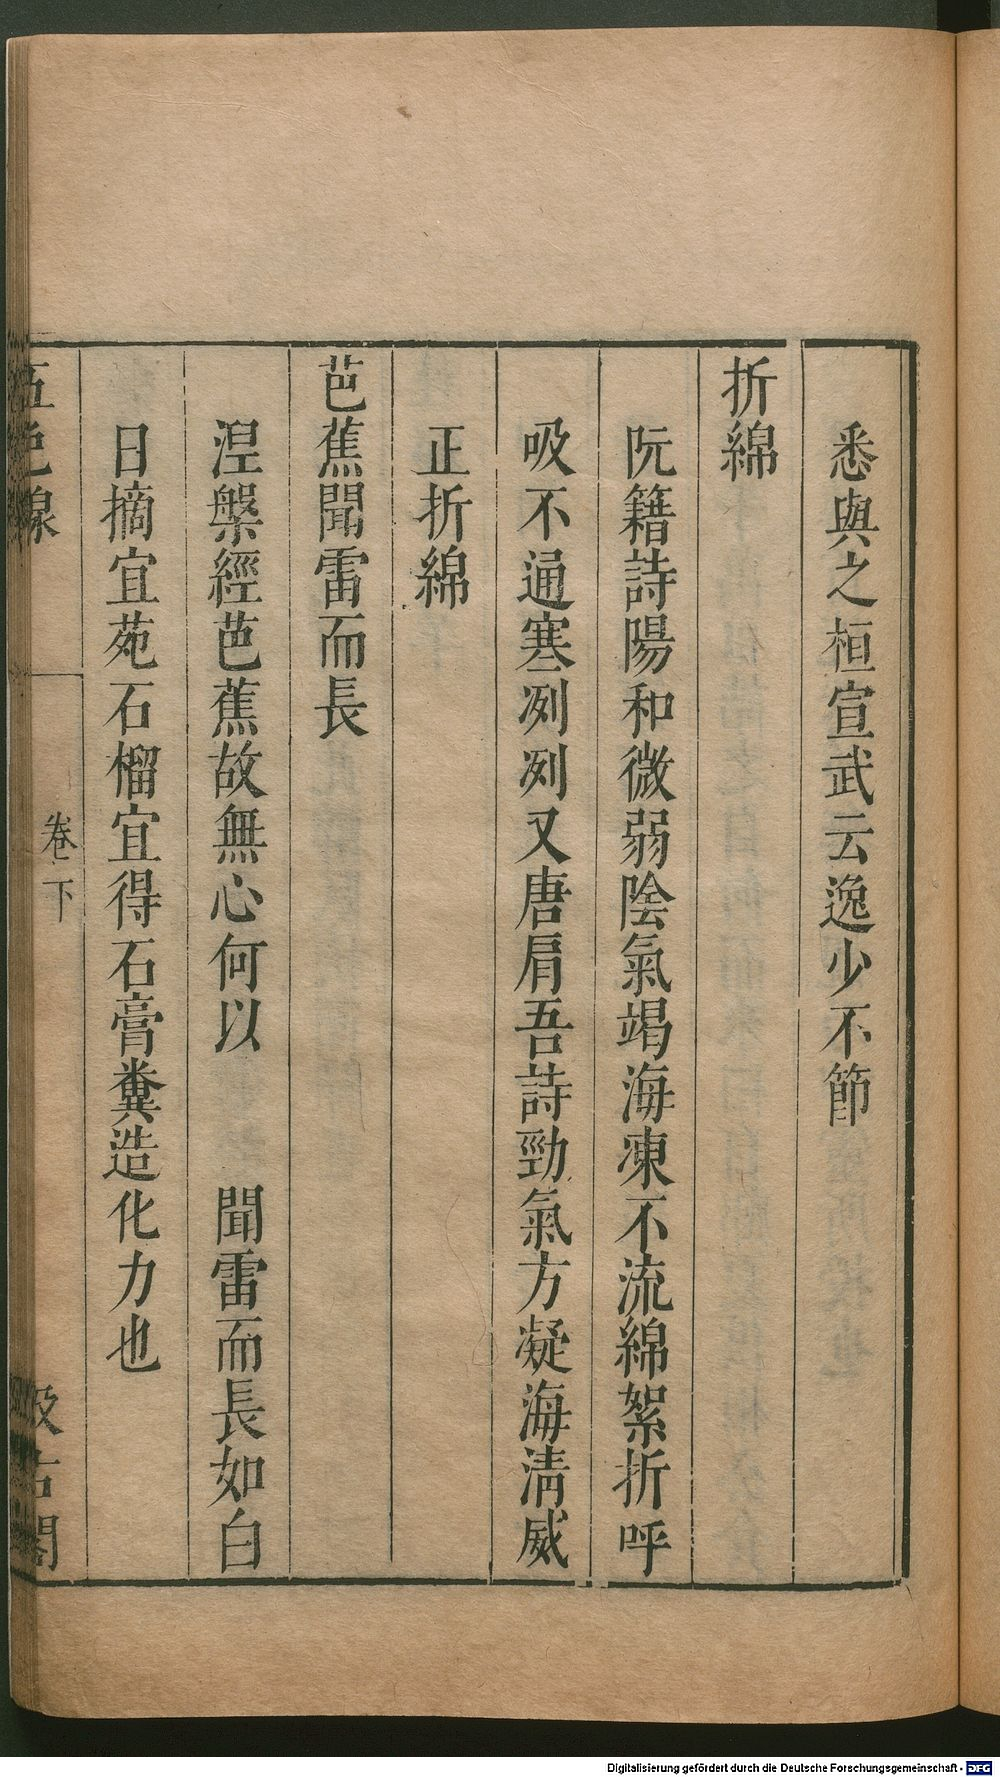 悉與之桓宣武云逸少不節
折綿
阮籍詩陽和微弱陰氣竭海凍不流綿絮折呼
吸不通寒冽冽又唐肩吾詩勁氣方凝海清威
正折綿
芭蕉聞雷而長
涅槃經芭蕉故無心何以　　聞雷而長如白
日摘宜苑石榴宜得石膏糞造化力也
五色線
卷下
汲古閣
Digitalisierung gefördert durch die Deutsche Forschungsgemeinschaft - DFG